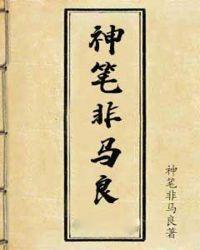 神笔非马良
神笔非马良著